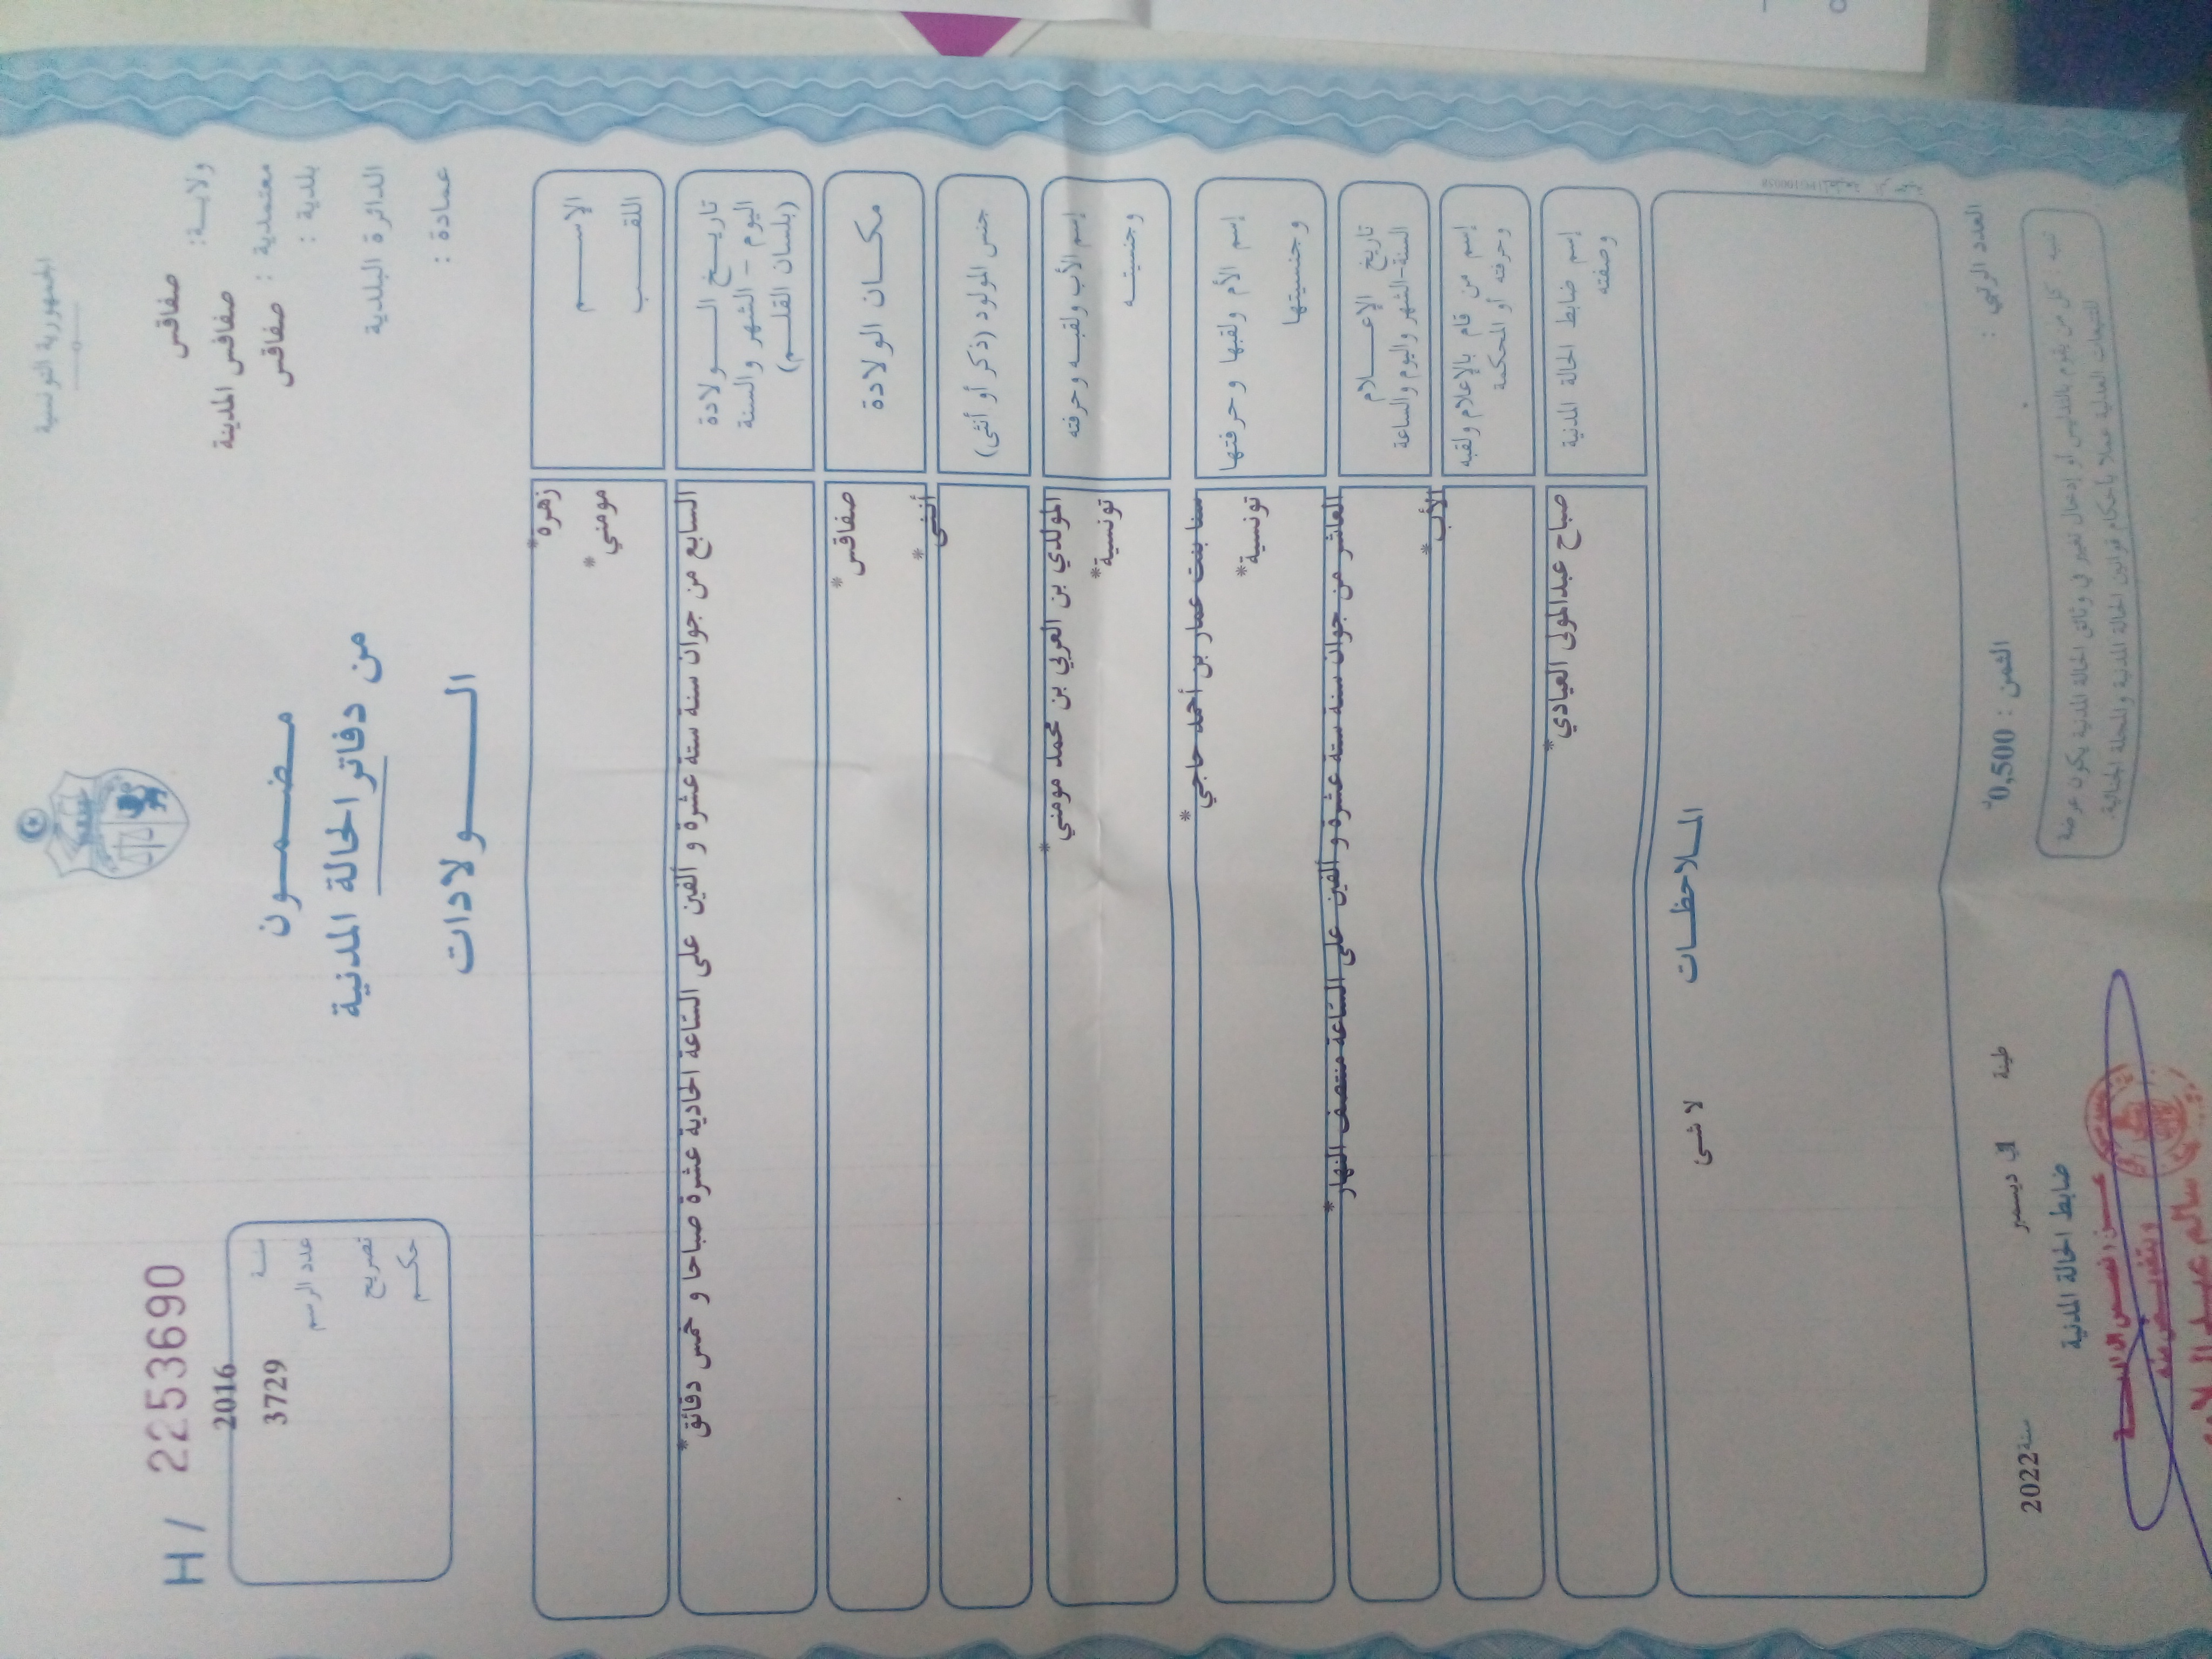 الجمهورية التونسية
ولايـــة: صفاقس
معتمدية : صفاقس المدينة
بلدية : صفاقس
الدائرة البلدية
عمادة :
مـضـمـــون
من دفاتر الحالة المدنية
الـــــــولادات
H / 2253690
سنــة 2016
عدد الرسم 3729
تصريح
حكــم
الإســـــم زهرة*
اللقــــب مومني*
تاريــخ الــــولادة السابع من جوان سنة ستة عشرة و ألفين على الساعة الحادية عشرة صباحا و خمس دقائق*
اليوم – الشهر والسنة
(بلسان القلــم)
مكـــان الولادة صفاقس*
جنس المولود (ذكر أو أنثى) أنثى*
إسم الأب ولقبـه وحرفته المولدي بن العربي بن محمد مومني*
وجنسيتــه تونسية*
إسم الأم ولقبها وحرفتها سنا بنت عمار بن أحمد حاجي*
وجنسيتها تونسية*
تاريخ الإعـــلام العاشر من جوان سنة ستة عشرة و ألفين على الساعة منتصف النهار*
السنة-الشهر واليوم والساعة
إسم من قام بالإعلام ولقبه الأب*
وحرفته أو المحكمة
إسم ضابط الحالة المدنية صباح عبدالمولى العيادي*
وصفته
المــلاحظــات
لا شىء
العدد الرتبي :
الثمن : 0,500
طينة في ديسمبر سنة 2022
تنبيه : كل من يقوم بالتدليس أو إدخال تغيير في وثائق الحالة المدنية يكون عرضة
للتتبعات العدلية عملا بأحكام قوانين الحالة المدنية والمجلة الجنائية.
ضابط الحالة المدنية
وبتفويض منه